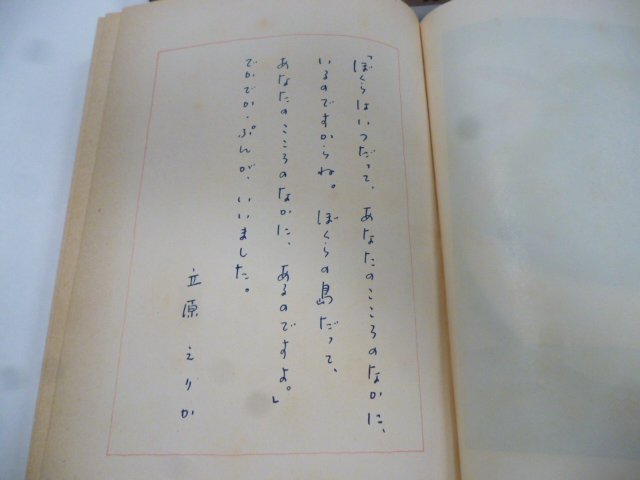 「ぼくらはいつだって、あなたのこころのなかに、
いるのですからね。ぼくらの島だって、
あなたのこころのなかに、あるのですよ。」
でかでか・ぷんが、いいました。
立原えりか